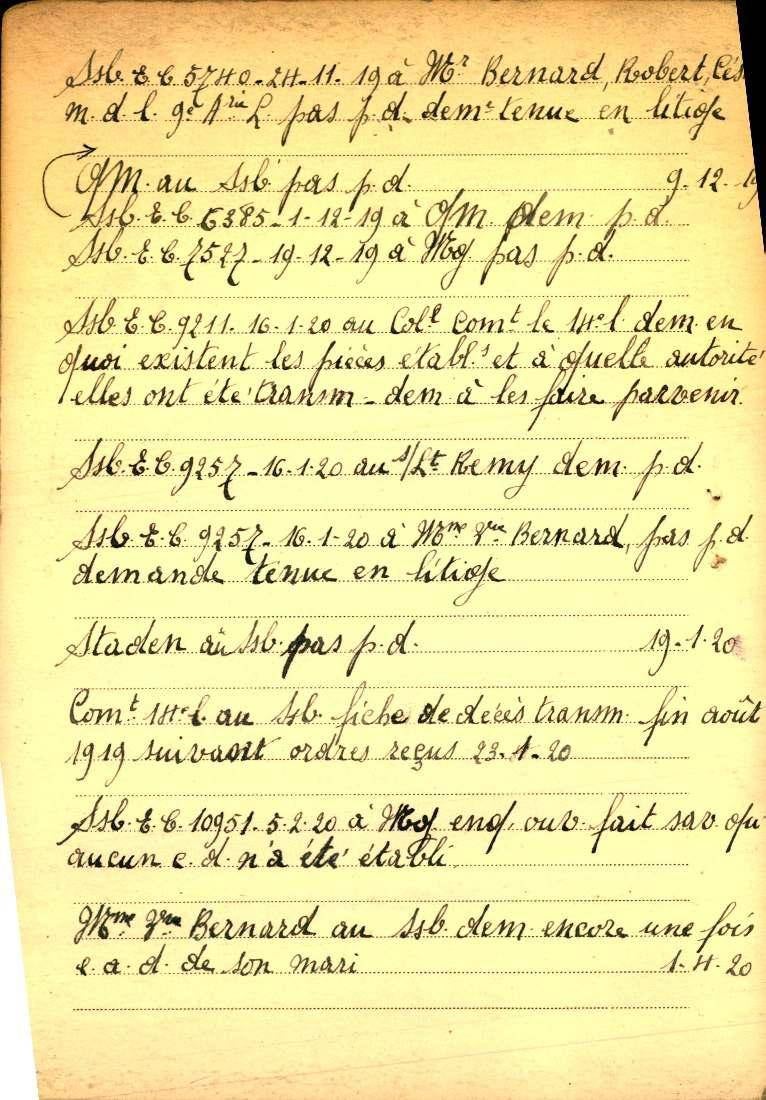 Ssb. E. C. 5740 - 24 - 11 - 19 à Mr Bernard, Robert, Cés
m. d. l. 9e Arie L pas p.d. deme tenue en litige
QM. au Ssb pas p.d. 9. 12. 19
Ssb. E. C. 6385 - 1 - 12 - 19 à QM. dem. p.d.
Ssb. E. C. 7527 - 19 - 12 - 19 à Mg pas p.d.
Ssb. E. C. 9211. 16. 1. 20 au Coll Comt le 14e l. dem. en
quoi existent les pièces établ.s et à quelle autorité
elles ont été transm - dem à les faire parvenir
Ssb. E. C. 9257 - 16. 1. 20 au s/Lt Remy dem. p.d.
Ssb. E. C. 9257 - 16. 1 - 20 à Mme Vve Bernard, pas p.d.
demande tenue en litige
Staden au Ssb. pas p.d. 19. 1. 20
Comt 14e l. au Ssb. fiche de décès transm. fin août
1919 suivant ordres reçus 23. 1. 20
Ssb. E. C. 10951. 5. 2. 20 à Mg enq. ouv. fait sav. qu
aucun c. d. n'a été établi
Mme Vve Bernard au Ssb. dem encore une fois
c. a. d. de son mari 1. 4. 20